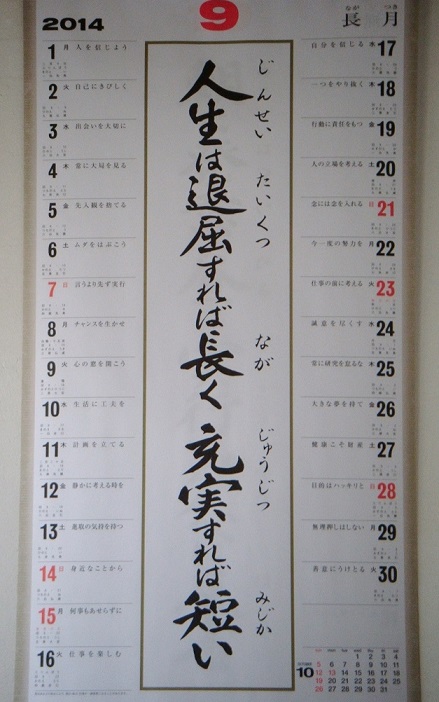 2014
9
なが つき
長月
人生は退屈すれば長く 充実すれば短い
じんせい たいくつ なが じゅうじつ みじか
1 月 人を信じよう
2 火 自己にきびしく
3 水 出会いを大切に
4 木 常に大局を見る
5 金 先入観を捨てる
6 土 ムダをはぶこう
7 日 言うより先ず実行
8 月 チャンスを生かせ
9 火 心の窓を開こう
10 水 生活に工夫を
11 木 計画を立てる
12 金 静かに考える時を
13 土 進取の気持を持つ
14 日 身近なことから
15 月 何事もあせらずに
16 火 仕事を楽しむ
17 水 自分を信じる
18 木 一つをやり抜く
19 金 行動に責任をもつ
20 土 人の立場を考える
21 日 念には念を入れる
22 月 今一度の努力を
23 火 仕事の前に考える
24 水 誠意を尽くす
25 木 常に研究を怠るな
26 金 大きな夢を持て
27 土 健康こそ財産
28 日 目的はハッキリと
29 月 無理押しはしない
30 火 善意にうけとる
10
1 2 3 4
5 6 7 8 9 10 11
12 13 14 15 16 17 18
19 20 21 22 23 24 25
26 27 28 29 30 31